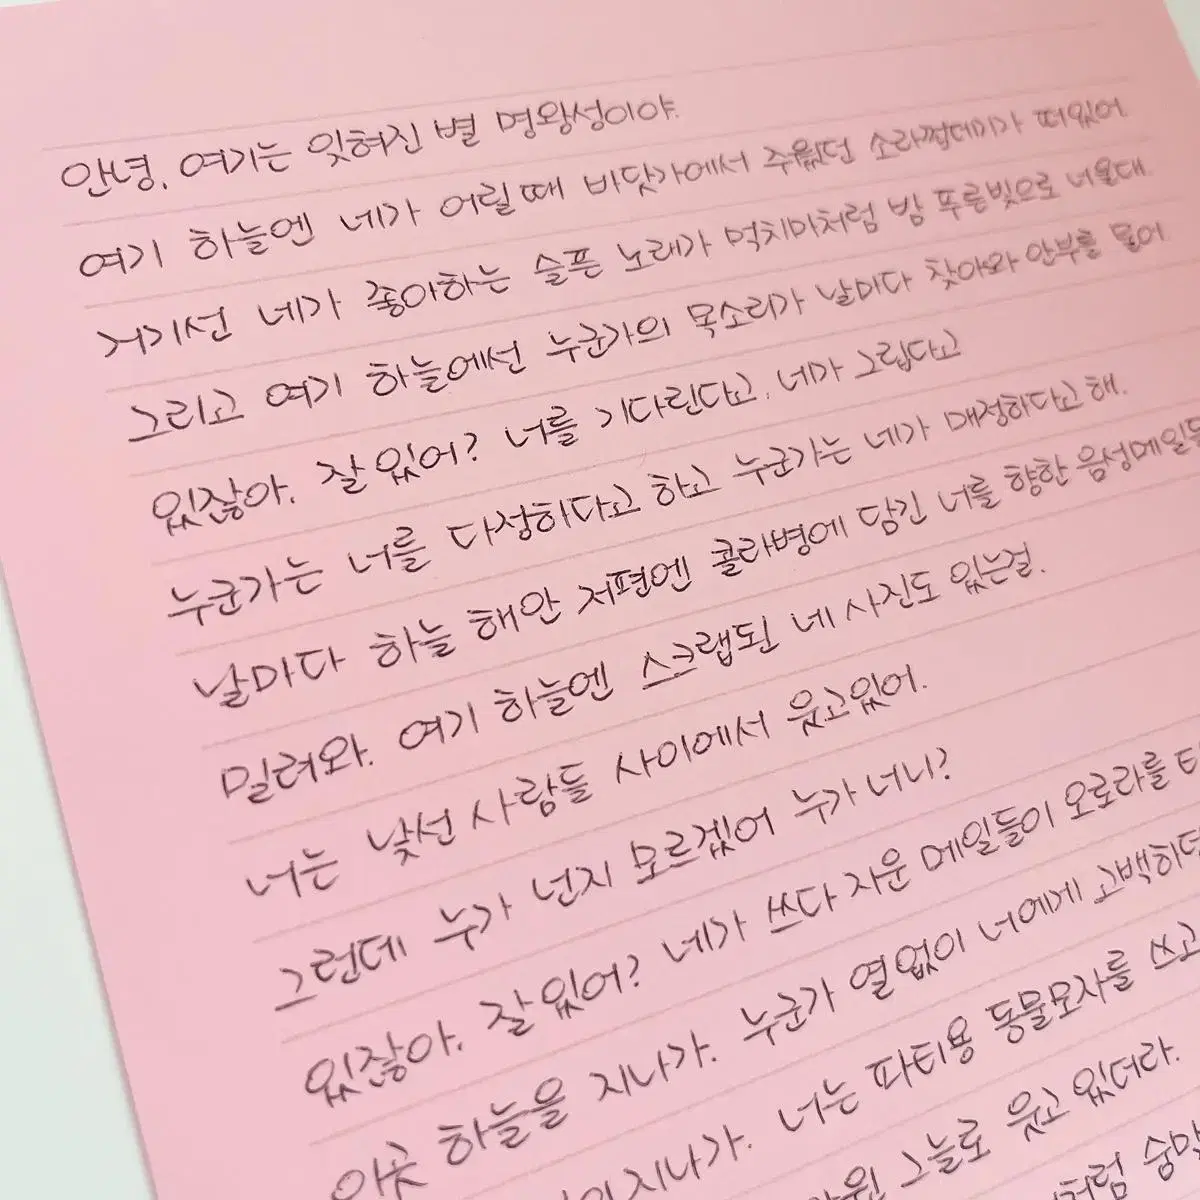 안녕, 여기는 잊혀진 별 명왕성이야.
여기 하늘엔 네가 어릴 때 바닷가에서 주웠던 소라껍데기가 떠있어.
거기선 네가 좋아하는 슬픈 노래가 먹치마처럼 밤 푸른빛으로 너울대.
그리고 여기 하늘에선 누군가의 목소리가 날마다 찾아와 안부를 물어
있잖아, 잘있어? 너를 기다린다고, 네가 그립다고
누군가는 너를 다정하다고 하고 누군가는 네가 매정하다고 해.
날마다 하늘 해안 저편엔 콜라병에 담긴 너를 향한 음성메일들
밀려와. 여기 하늘엔 스크랩된 네 사진도 있는걸.
너는 낯선 사람들 사이에서 웃고있어.
그런데 누가 넌지 모르겠어 누가 너니?
있잖아, 잘있어? 네가 쓰다 지운 메일들이 오로라를
이곳 하늘을 지나가. 누군가 열없이 너에게
지나가. 너는 파티용 동물모자를 쓰고
그늘로 웃고 있더라.